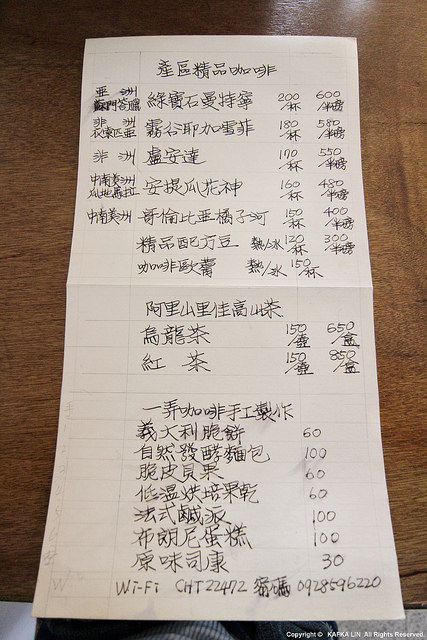 產區精品咖啡
亞洲 蘇門答臘 綠寶石曼特寧 200/杯 600/半磅
非洲 衣索匹亞 霧谷耶加雪菲 180/杯 580/半磅
非洲 盧安達 170/杯 550/半磅
中南美洲 瓜地馬拉 安提瓜花神 160/杯 480/半磅
中南美洲 哥倫比亞橘子河 150/杯 400/半磅
精品配方豆 熱/冰 120/杯 300/半磅
咖啡歐蕾 熱/冰 150/杯
阿里山里佳高山茶
烏龍茶 150/壺 650/盒
紅茶 150/壺 850/盒
一弄咖啡手工製作
義大利脆餅 60
自然發酵麵包 100
脆皮貝果 60
低溫烘培果乾 60
法式鹹派 100
布朗尼蛋糕 100
原味司康 30
Wi-Fi CHT22472 密碼 0928596220
Copyright © KAFKA LIN All Rights Reserved